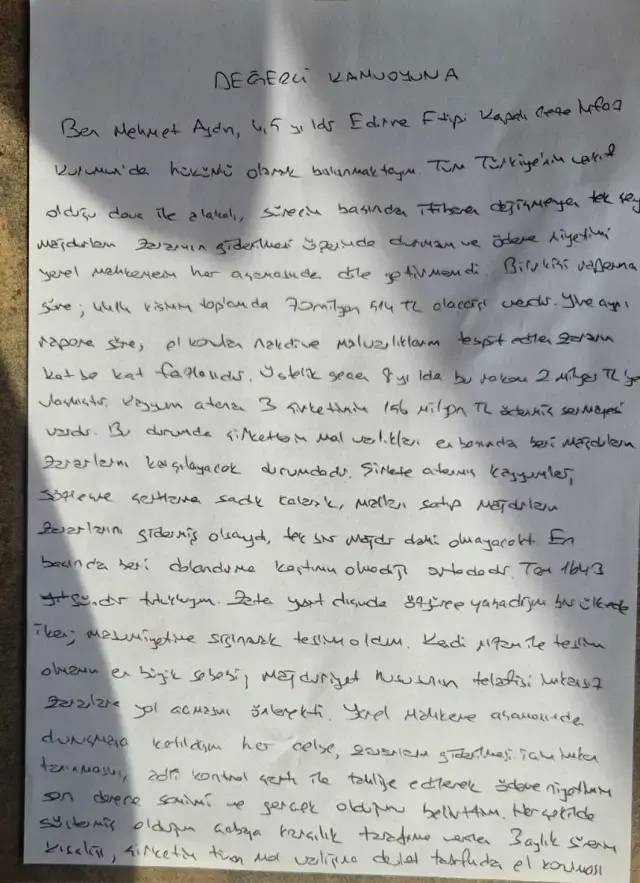 DEĞERLİ KAMUOYUNA
Ben Mehmet Aydın, 4,5 yıldır Edirne F tipi Kapalı Ceza İnfaz
Kurumun'da hükümlü olarak bulunmaktayım. Tüm Türkiye'nin vakıf
olduğu dava ile alakalı, sürecin başından itibaren değişmeyen tek şey
mağdurların zararının giderilmesi üzerinde durmam ve ödeme niyetimi
yerel mahkemenin her aşamasında dile getirmemdi. Bilirkişi raporuna
göre; ülke kısmın toplamda 70 milyon 514 TL alacağı vardır. Yine aynı
rapora göre, el konulan nakdi ve malvarlıklarım tespit edilen zararın
kat be kat fazlasıdır. Üstelik geçen 8 yılda bu rakam 2 milyar TL'ye
ulaşmıştır. Kayyum atanan 3 şirketimin 156 milyon TL ödenmiş sermayesi
vardır. Bu durumda şirketlerin mal varlıkları en başında beri mağdurların
zararlarını karşılayacak durumdadır. Şirkete atanmış kayyumlar,
sözleşme şartlarına sadık kalarak, malları satıp mağdurların
zararlarını gidermiş olsaydı, tek bir mağdur dahi olmayacaktı. En
başında beri dolandırma kastımın olmadığı ortadadır. Tam 1643
gündür tutukluyum. Zaten yurt dışında özgürce yaşadığım bir ülkede
iken; masumiyetime sığınarak teslim oldum. Kendi rızam ile teslim
olmamın en büyük sebebi, mağduriyet hususunun telafisi imkansız
zararlara yol açmasını önlemekti. Yerel mahkeme aşamasında
duruşmaya katıldığım her celse, zararların giderilmesi için imkan
tanınmasını, adli kontrol şartı ile tahliye edilerek ödeme niyetimin
son derece samimi ve gerçek olduğunu belirttim. Her şekilde
göstermiş olduğum çabaya karşılık tarafıma verilen 3 aylık sürenin
kısalığı, şirketin tüm mal varlığına devlet tarafında el konması